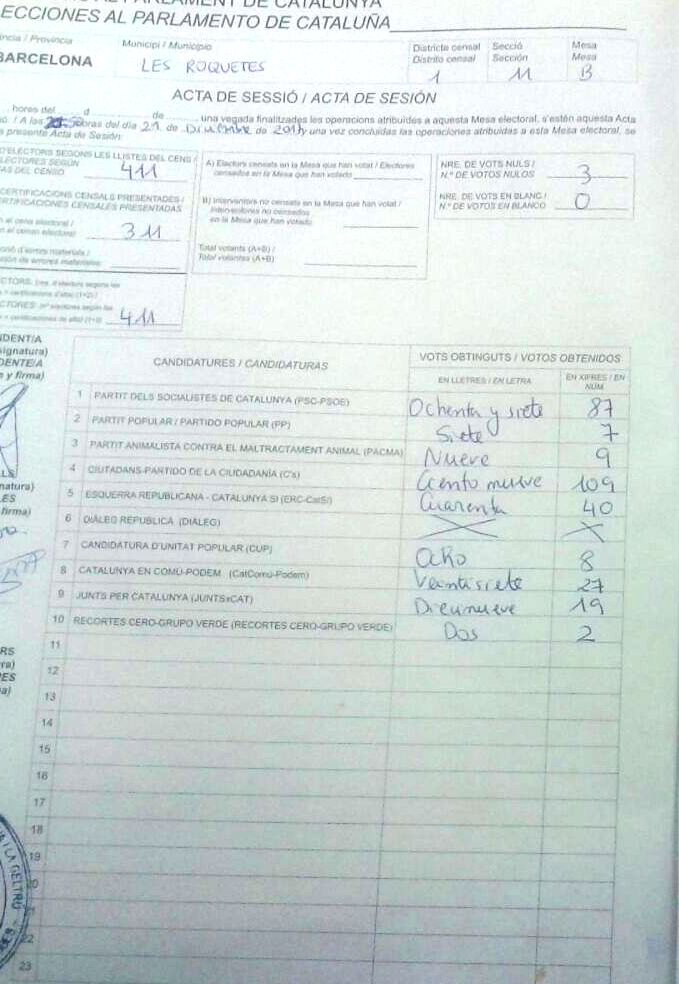 ECCIONES AL PARLAMENTO DE CATALUÑA
Província / Provincia
BARCELONA
Municipi / Municipio
LES ROQUETES
Districte censal
Distrito censal
1
Secció
Sección
11
Mesa
Mesa
B
ACTA DE SESSIÓ / ACTA DE SESIÓN
hores del d de una vegada finalitzades les operacions atribuïdes a aquesta Mesa electoral, s'estén aquesta Acta
/ A las horas del día 21 de Diciembre de 2017 una vez concluidas las operaciones atribuidas a esta Mesa electoral, se
presente Acta de Sesión:
D'ELECTORS SEGONS LES LLISTES DEL CENS /
ELECTORES SEGÚN
AS DEL CENSO 411
CERTIFICACIONS CENSALS PRESENTADES /
RTIFICACIONES CENSALES PRESENTADAS
n al cens electoral /
n al censo electoral 311
ció d'errors materials /
ción de errores materiales
CTORES: nº electores según las
411
A) Electors censats en la Mesa que han votat / Electores
censados en la Mesa que han votado
B) Interventors no censats en la Mesa que han votat /
Interventores no censados
en la Mesa que han votado
Total votants (A+B) /
Total votantes (A+B)
NRE. DE VOTS NULS /
N.º DE VOTOS NULOS 3
NRE. DE VOTS EN BLANC /
N.º DE VOTOS EN BLANCO 0
IDENT/A
signatura)
DENTE/A
y firma)
CANDIDATURES / CANDIDATURAS
VOTS OBTINGUTS / VOTOS OBTENIDOS
EN LLETRES / EN LETRA
EN XIFRES / EN
NÚM
1 PARTIT DELS SOCIALISTES DE CATALUNYA (PSC-PSOE) Ochenta y siete 87
2 PARTIT POPULAR / PARTIDO POPULAR (PP) Siete 7
3 PARTIT ANIMALISTA CONTRA EL MALTRACTAMENT ANIMAL (PACMA) Nueve 9
4 CIUTADANS-PARTIDO DE LA CIUDADANÍA (C's) Ciento nueve 109
5 ESQUERRA REPUBLICANA - CATALUNYA SÍ (ERC-CatSí) Cuarenta 40
6 DIÀLEG REPÚBLICA (DIÀLEG) X X
7 CANDIDATURA D'UNITAT POPULAR (CUP) ocho 8
8 CATALUNYA EN COMÚ-PODEM (CatComú-Podem) Veintisiete 27
9 JUNTS PER CATALUNYA (JUNTSxCAT) Diecinueve 19
10 RECORTES CERO-GRUPO VERDE (RECORTES CERO-GRUPO VERDE) Dos 2
11
12
13
14
15
16
17
18
19
20
21
22
23
natura)
ES
firma)
RS
ra)
ES
a)
LA GELTRÚ